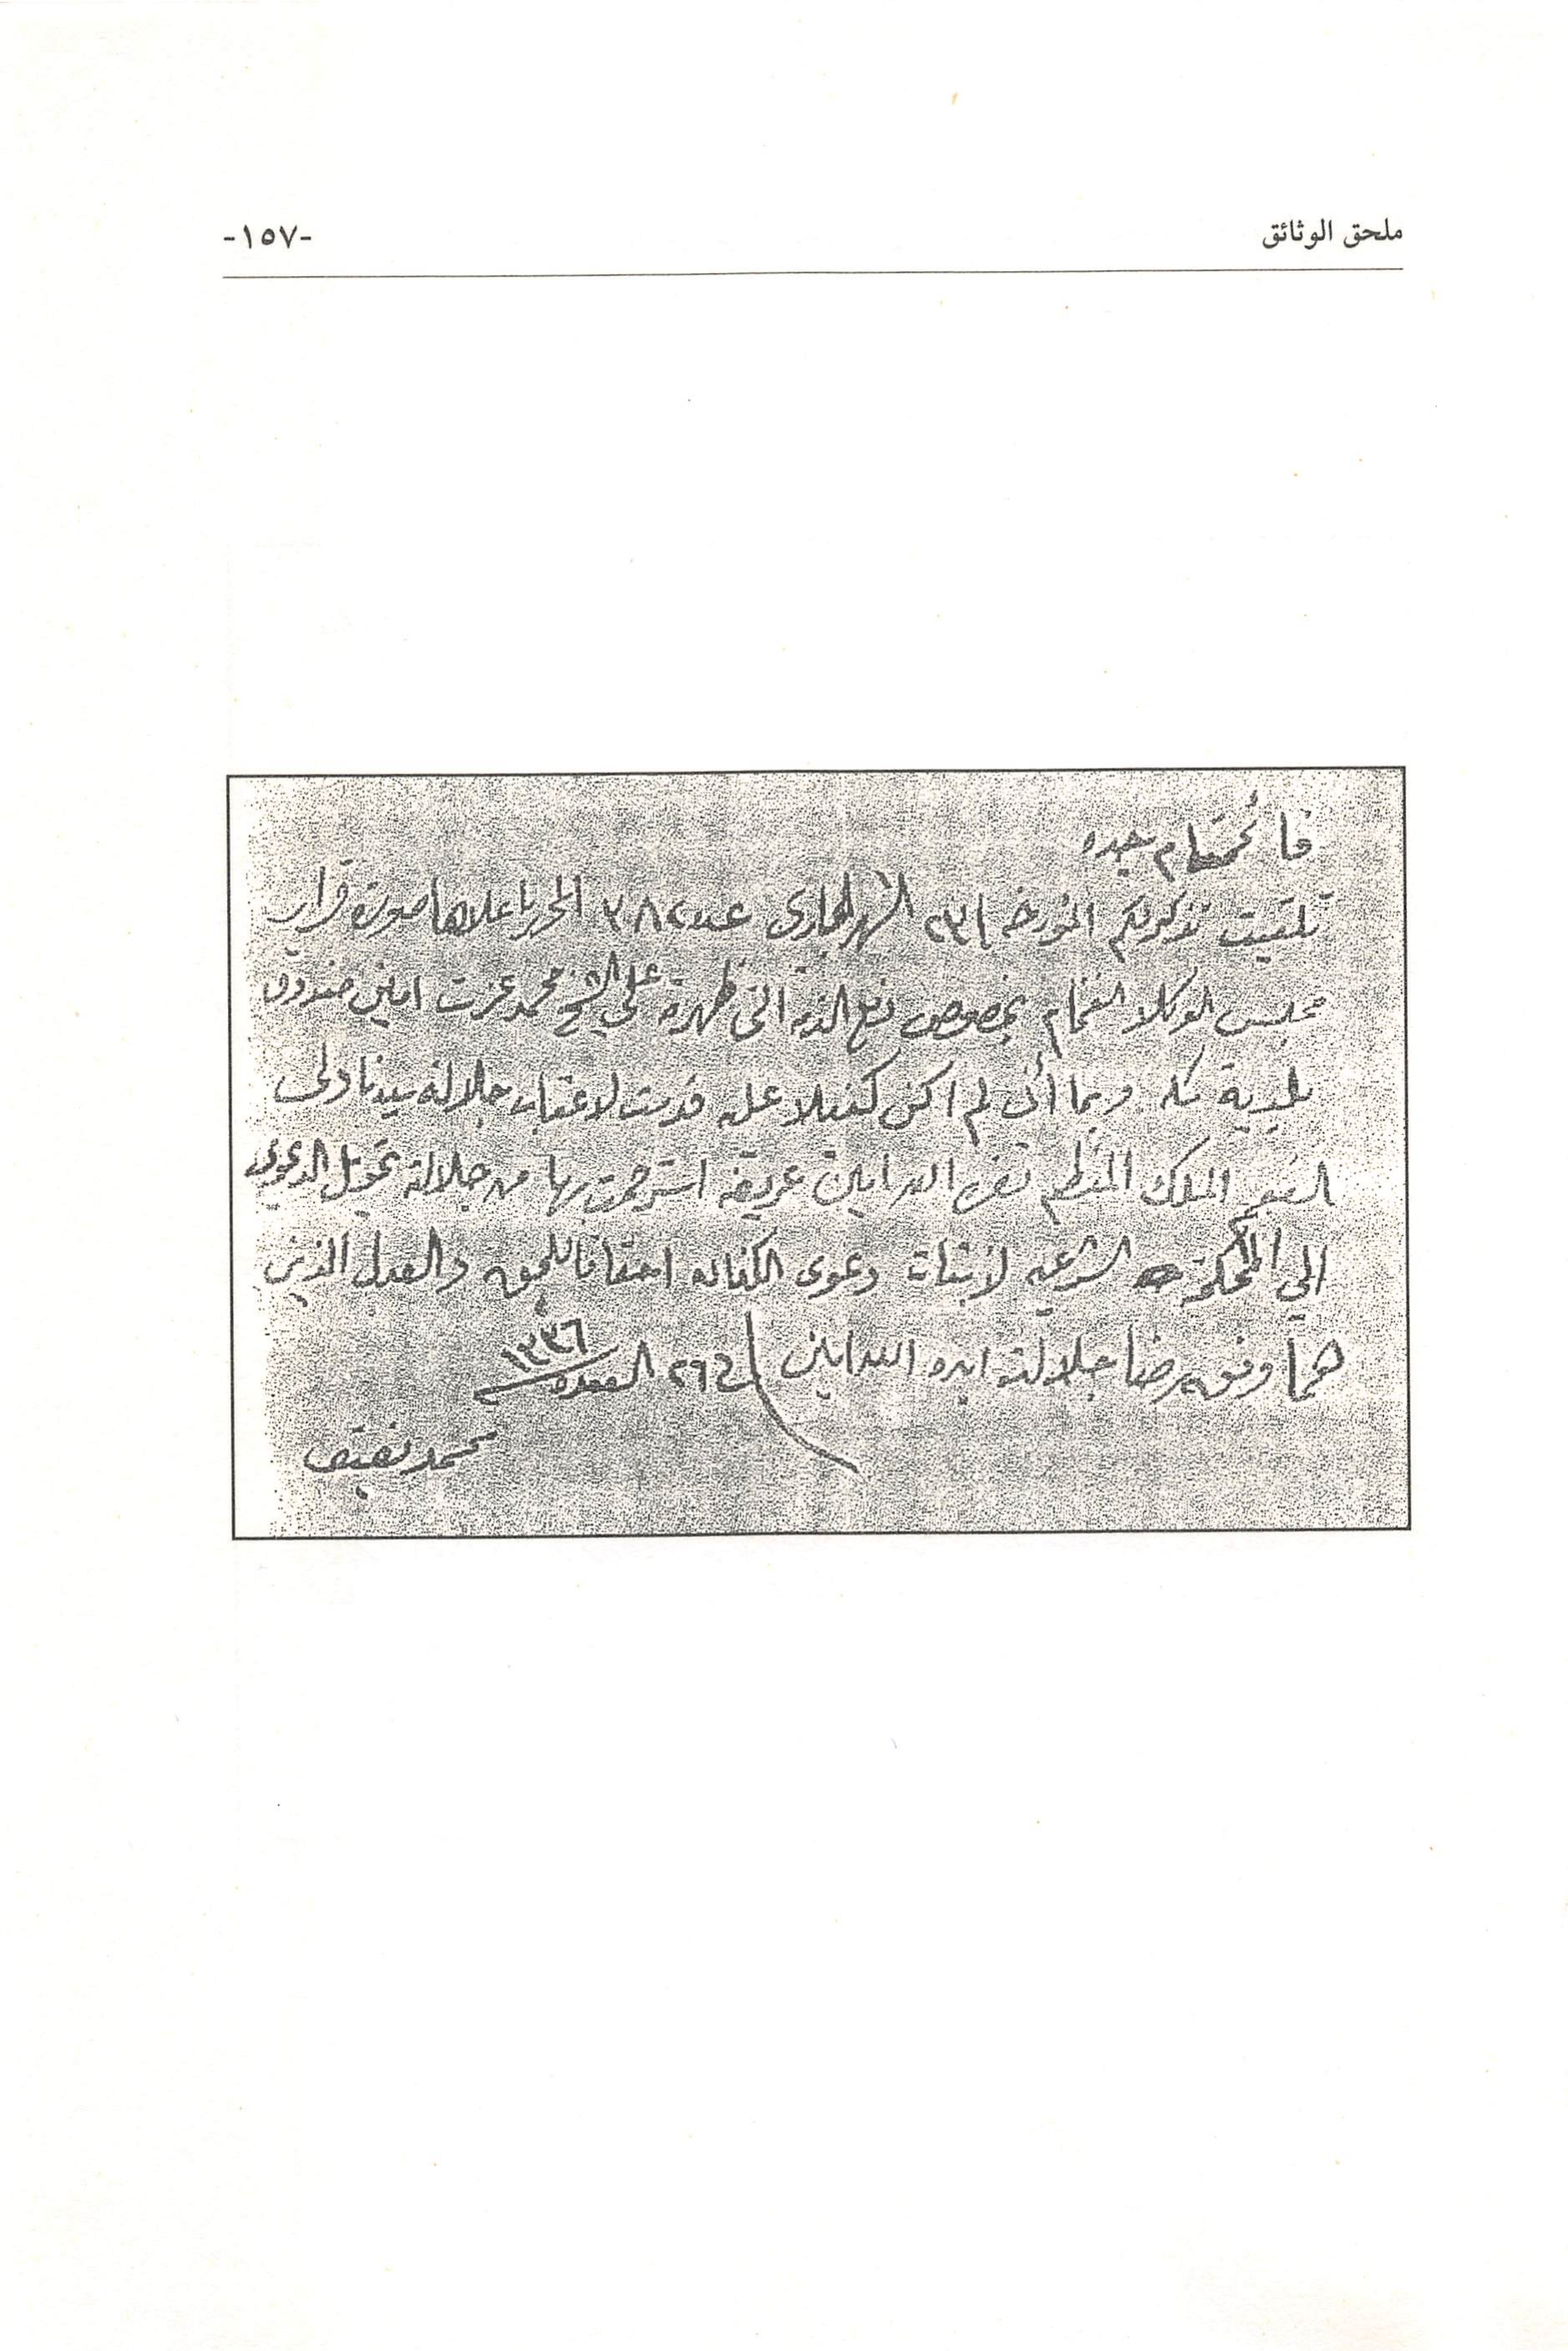 ملحق الوثائق
-١٥٧-
قائمقام جده
تلقيت تذكرتكم المؤرخه ٢٣ الشهر الجارى عدد ٣٨٢ المحرر باعلاها صورة قرار
مجلس الوكلا الفخام بخصوص دفع الذمة التى ظهرة على الشيخ محمد عزت امين صندوق
بلدية مكه وبما أنى لم اكن كفيلا عليه قدمت لاعتاب جلالة سيدنا ولى
النعم الملك المعظم عريضه استرحمت بها من جلالته تحويل الدعوى
الي المحكمة الشرعيه لاثبات دعوى الكفاله احقاقا للحق والعدل الذين
هما وفق رضا جلالته ايده الله امين في ٢٦ القعده ١٣٣٦
محمد نصيف